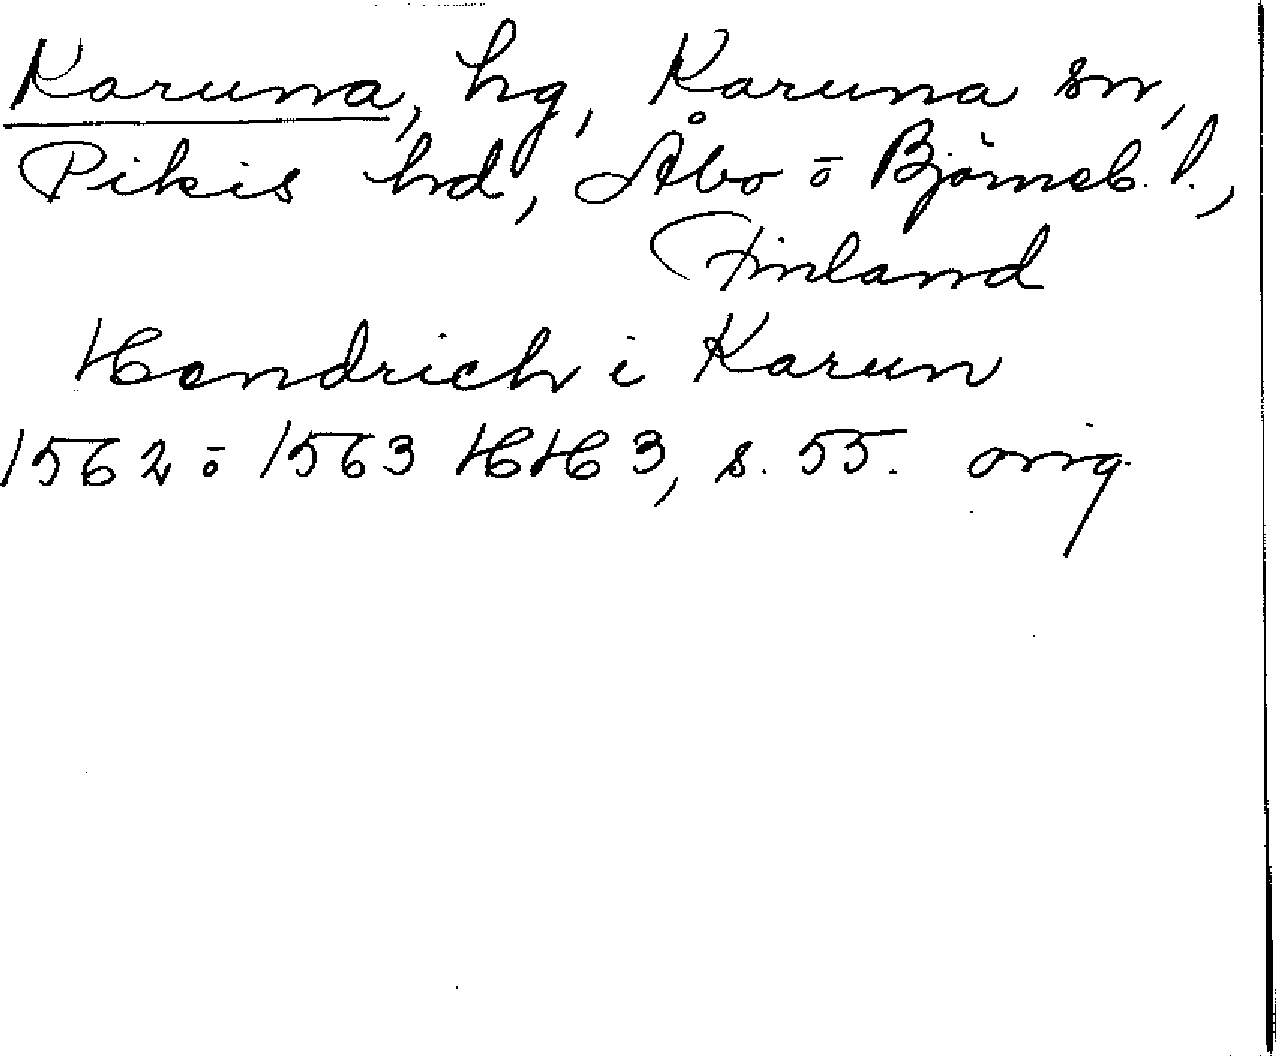 Karuna, hg, Karuna sn,
Pikis hd, Åbo o Björneb. l.,
Finland
Hendrich i Karun
1562 o 1563 HH 3, s. 55. orig.